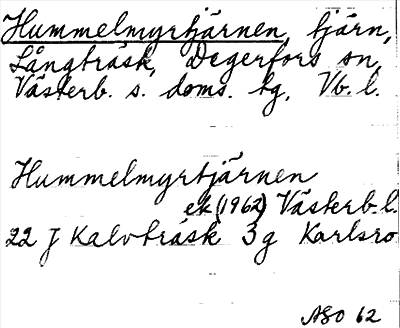 Hummelmyrtjärnen, tjärn,
Långträsk, Degerfors sn,
Västerb. s. doms. tg, Vb. l.
Hummelmyrtjärnen
ek (1962) Västerb. l.
22 J Kalvträsk 3g Karlsro
ASO 62